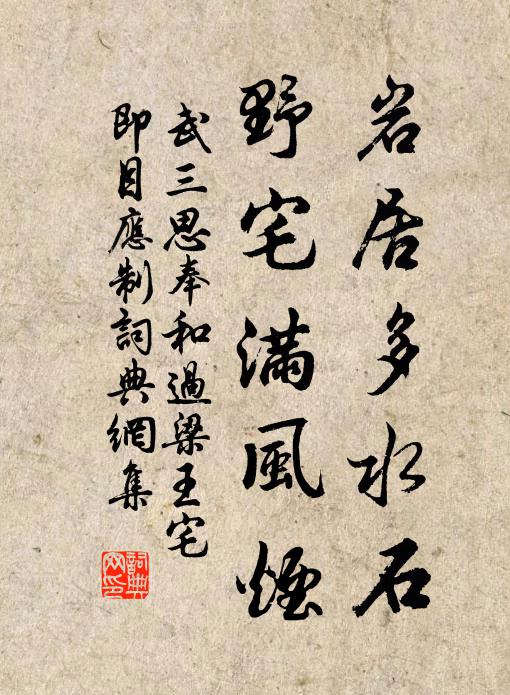 岩居多水石
野宅滿風煙
武三思奉和過梁王宅
即目應制詞典網集
詞典
网印